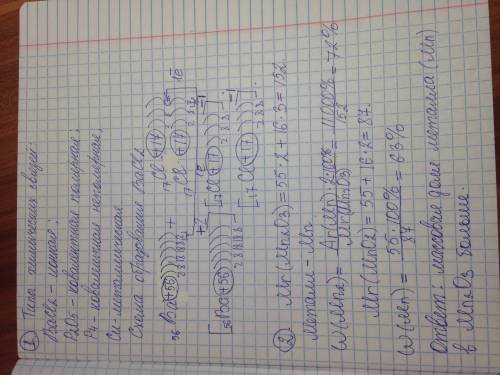 ① Типы химических связей:
BaCl2 - ионная;
P2O5 - ковалентная полярная;
P4 - ковалентная неполярная;
Cu - металлическая.
Схема образования BaCl2
56Ba(+56))))))) + 17Cl(+17)))) 17Cl(+17))))
2 8 18 18 8 2 2 8 7 2 8 7
1ē 1ē
[56Ba(+56)))))))]+2 [17Cl(+17))))]-1 [17Cl(+17))))]-1
2 8 18 18 8 2 8 8 2 8 8
② Mr(Mn2O3) = 55·2 + 16·3 = 152
Металл - Mn
W(Mn) = Ar(Mn)·2·100% / Mr(Mn2O3) = 11000% / 152 = 72%
Mr(MnO2) = 55 + 16·2 = 87.
W(Mn) = 55·100% / 87 = 63%
Ответ: массовая доля металла (Mn)
в Mn2O3 больше.